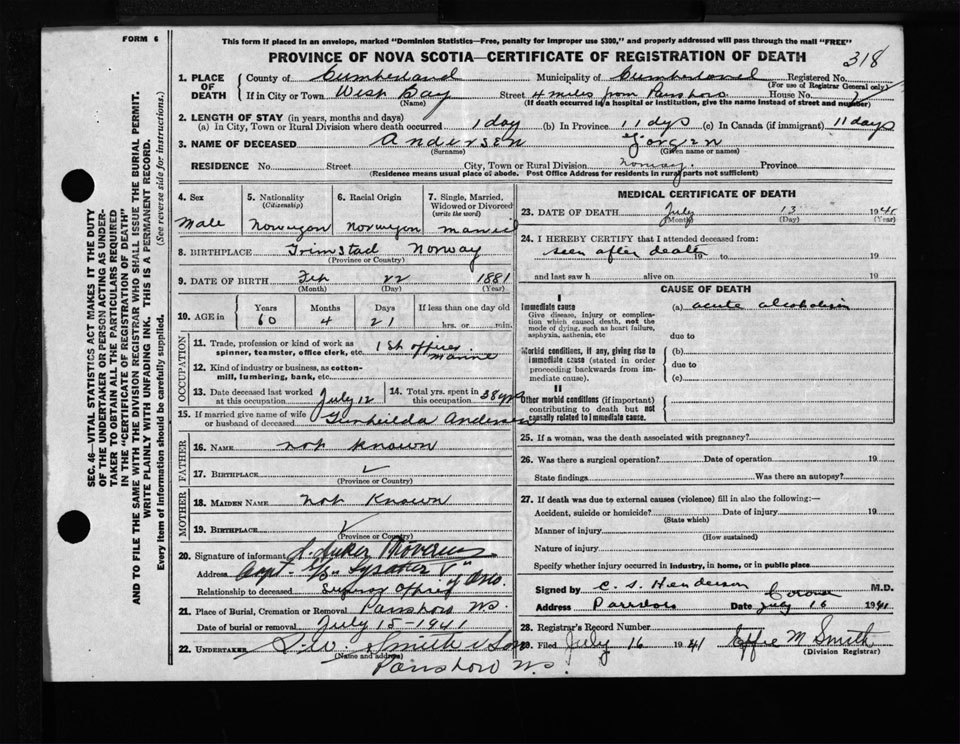 FORM 6
This form if placed in an envelope, marked "Dominion Statistics—Free, penalty for improper use $300," and properly addressed will pass through the mail "FREE"
PROVINCE OF NOVA SCOTIA—CERTIFICATE OF REGISTRATION OF DEATH
318
1. PLACE OF DEATH
County of Cumberland Municipality of Cumberland Registered No.
(For use of Registrar General only)
If in City or Town West Bay Street 4 miles from Parrsboro House No.
(Name) (If death occurred in a hospital or institution, give the name instead of street and number)
2. LENGTH OF STAY (in years, months and days)
(a) In City, Town or Rural Division where death occurred 1 day (b) In Province 11 dys (c) In Canada (if immigrant) 11 days
3. NAME OF DECEASED Andersen Yorgen
(Surname) (Given name or names)
RESIDENCE No. Street City, Town or Rural Division Norway. Province
(Residence means usual place of abode. Post Office Address for residents in rural parts not sufficient)
4. Sex
Male
5. Nationality
(Citizenship)
Norwegan
6. Racial Origin
Norwegan
7. Single, Married, Widowed or Divorced
(write the word)
married
8. BIRTHPLACE Grimstad Norway
(Province or Country)
9. DATE OF BIRTH Feb 22 1881
(Month) (Day) (Year)
10. AGE in
Years Months Days If less than one day old
60 4 21 hrs. or min.
OCCUPATION
11. Trade, profession or kind of work as
spinner, teamster, office clerk, etc. 1st officer Marine
12. Kind of industry or business, as cotton-
mill, lumbering, bank, etc.
13. Date deceased last worked
at this occupation July 12
14. Total yrs. spent in
this occupation 38 yrs
15. If married give name of wife
or husband of deceased Andersen
FATHER
16. NAME not known
17. BIRTHPLACE ✓
(Province or Country)
MOTHER
18. MAIDEN NAME not known
19. BIRTHPLACE ✓
(Province or Country)
20. Signature of informant
Address Capt. S/S "V" of Oslo.
Relationship to deceased Superior Officer
21. Place of Burial, Cremation or Removal Parrsboro NS.
Date of burial or removal July 15-1941
22. UNDERTAKER Smith & Son
(Name and address)
Parrsboro NS.
MEDICAL CERTIFICATE OF DEATH
23. DATE OF DEATH July 13 1941
(Month) (Day) (Year)
24. I HEREBY CERTIFY that I attended deceased from:
seen after death 19 to 19
and last saw h alive on 19
CAUSE OF DEATH
I
Immediate cause
Give disease, injury or complica-
tion which caused death, not the
mode of dying, such as heart failure,
asphyxia, asthenia, etc
(a) acute alcoholism
due to
Morbid conditions, if any, giving rise to
immediate cause (stated in order
proceeding backwards from im-
mediate cause).
(b)
due to
(c)
II
Other morbid conditions (if important)
contributing to death but not
causally related to immediate cause.
25. If a woman, was the death associated with pregnancy?
26. Was there a surgical operation? Date of operation 19
State findings Was there an autopsy?
27. If death was due to external causes (violence) fill in also the following:—
Accident, suicide or homicide? Date of injury 19
(State which)
Manner of injury
(How sustained)
Nature of injury
Specify whether injury occurred in industry, in home, or in public place
Signed by C. S. Henderson M.D.
Coroner
Address Parrsboro Date July 16 1941
28. Registrar's Record Number
29. Filed July 16 1941 Effie M Smith
(Division Registrar)
SEC. 46—VITAL STATISTICS ACT MAKES IT THE DUTY
OF THE UNDERTAKER OR PERSON ACTING AS UNDER-
TAKER TO OBTAIN ALL THE PARTICULARS REQUIRED
IN THE "CERTIFICATE OF REGISTRATION OF DEATH"
AND TO FILE THE SAME WITH THE DIVISION REGISTRAR WHO SHALL ISSUE THE BURIAL PERMIT.
WRITE PLAINLY WITH UNFADING INK. THIS IS A PERMANENT RECORD.
Every item of information should be carefully supplied. (See reverse side for instructions.)